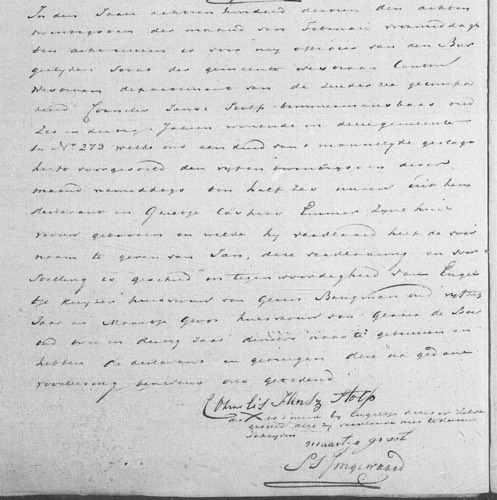 In den Jaare achtien honderd dertien den achten
twintigsten der maand van Februarij voormiddags
ten acht uuren is voor mij officier van den Bur
gerlijken Staat der gemeente Westzaan Canton
Westzaan departement van de Zuiderzee gecompa
reerd Cornelis Jansz Stolp timmermansbaas oud
Zes en dertig Jaaren woonende in deze gemeente
in No 273 welke ons een kind van t mannelijk geslagt
heeft voorgesteld den vijfen twintigsten dezer
maand namiddags ten half zes uuren uit hem
declarant en Grietje Emmer Zyne huis
vrouw gebooren en welke hij verklaard heeft de voor
naam te geven van Jan, deze verklaaring en voor
Stelling is geschied in tegenwoordigheid van Engel
tje Kuyzer huisvrouw van Gerrit Brugman oud vyftig
Jaar en Maartje Groot huisvrouw van de
oud en dertig Jaar naaste gebuuren en
hebben de declarant en getuigen deze na gedane
voorlezing benevens ons getekend
Cornelis Jansz Stolp
dit X is gesteld by Engeltje Keizer
met te kunnen
Schryven
maartje groot